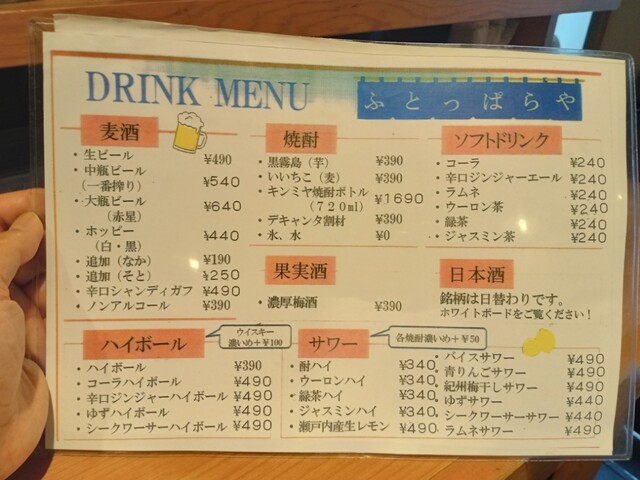 DRINK MENU
ふとっぱらや
麦酒
・生ビール ¥490
・中瓶ビール
(一番搾り) ¥540
・大瓶ビール
(赤星) ¥640
・ホッピー
(白・黒) ¥440
・追加(なか) ¥190
・追加(そと) ¥250
・辛口シャンディガフ ¥490
・ノンアルコール ¥390
焼酎
・黒霧島(芋) ¥390
・いいちこ(麦) ¥390
・キンミヤ焼酎ボトル
(720ml) ¥1690
・デキャンタ割材 ¥390
・氷、水 ¥0
果実酒
・濃厚梅酒 ¥390
ソフトドリンク
・コーラ ¥240
・辛口ジンジャーエール ¥240
・ラムネ ¥240
・ウーロン茶 ¥240
・緑茶 ¥240
・ジャスミン茶 ¥240
日本酒
銘柄は日替わりです。
ホワイトボードをご覧ください!
ハイボール
ウイスキー
濃いめ+¥100
・ハイボール ¥390
・コーラハイボール ¥490
・辛口ジンジャーハイボール ¥490
・ゆずハイボール ¥490
・シークワーサーハイボール ¥490
サワー
各焼酎濃いめ+¥50
・酎ハイ ¥340
・ウーロンハイ ¥340
・緑茶ハイ ¥340
・ジャスミンハイ ¥340
・瀬戸内産生レモン ¥490
・バイスサワー ¥490
・青りんごサワー ¥490
・紀州梅干しサワー ¥490
・ゆずサワー ¥440
・シークワーサーサワー ¥440
・ラムネサワー ¥490